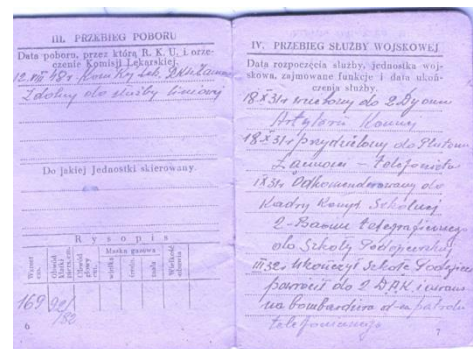 III. PRZEBIEG POBORU
Data poboru, przez którą R. K. U. i orze-
czenie Komisji Lekarskiej.
Zdolny do służby liniowej
Do jakiej Jednostki skierowany
Rysopis
Wzrost cm.
Obwód klatki piersiow.
Obwód głowy cm.
Maska gazowa
wielka
średn.
mała
Wielkość obuwia
169 92/82
6
IV. PRZEBIEG SŁUŻBY WOJSKOWEJ
Data rozpoczęcia służby, jednostka woj-
skowa, zajmowane funkcje i data ukoń-
czenia służby.
18 X 31 r wcielony do 2 Dyonu
Artylerii Konnej
18 X 31 r przydzielony do Plutonu
Łączności – telefonista
IX 31 r Odkomenderowany do
Kadry Komp. Szkolnej
2 Baonu telegraficznego
do Szkoły Podoficerskiej
III 32 r Ukończył Szkołę
powrócił do 2 D.A.K. i
na bombardiera patrolu
telefonicznego
7